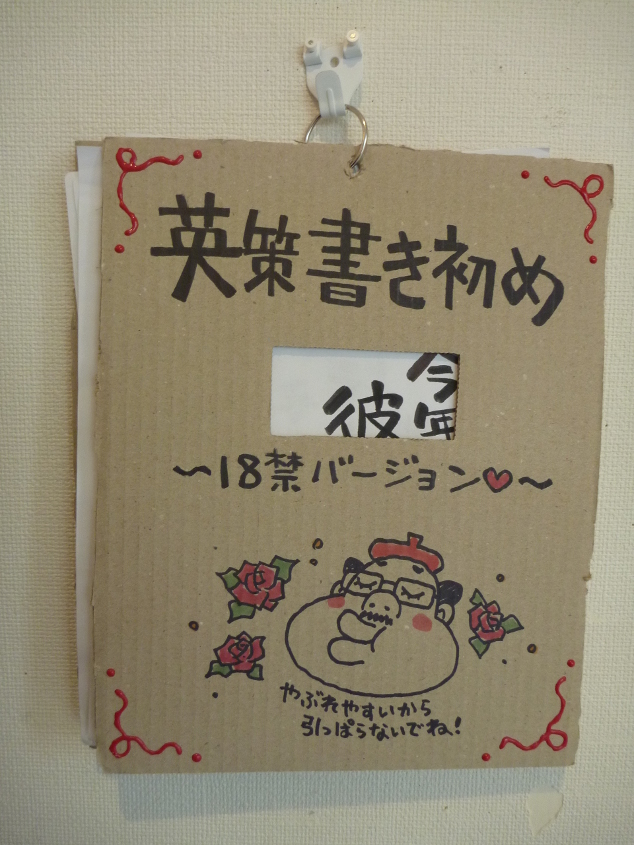 英策書き初め
今年
彼
〜18禁バージョン♥〜
やぶれやすいから
引っぱらないでね!